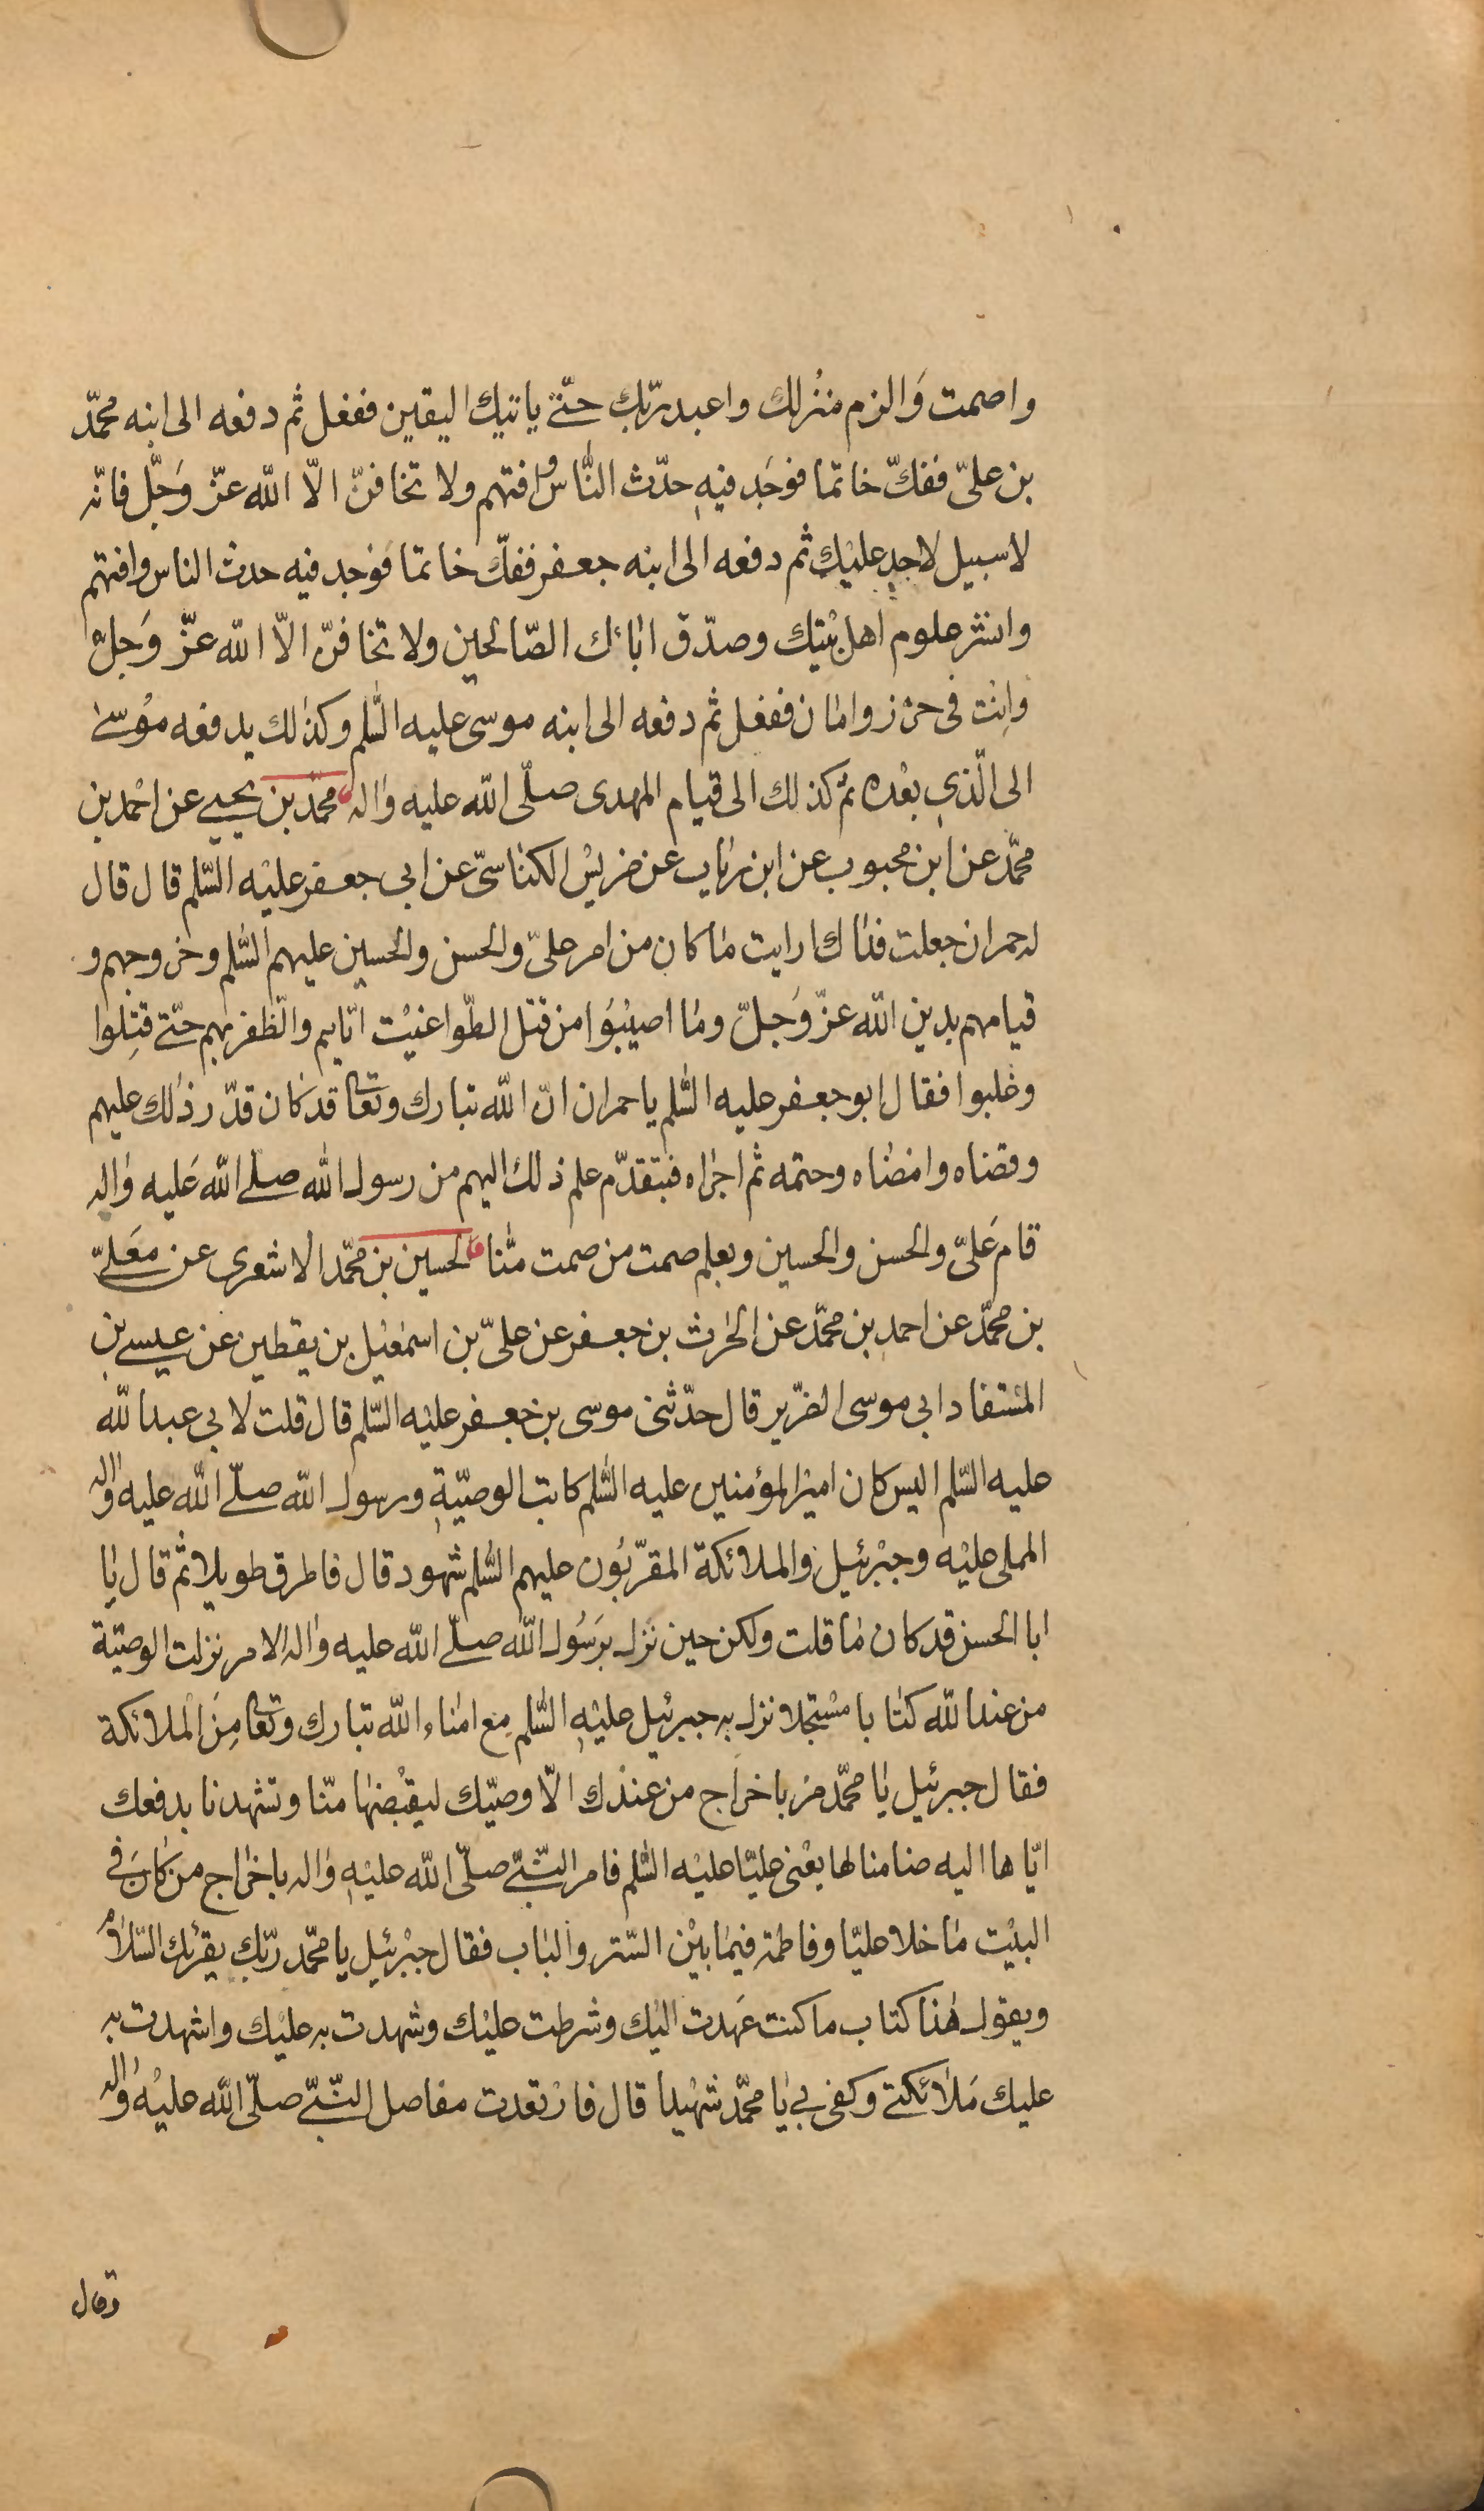 واصمت وَالزم منزلك واعبد ربّك حتّى ياتيك اليقين ففعل ثم دفعه الى ابنه محمّد
بن علىّ ففكّ خاتما فوجَد فيهِ حدّث النّاس وافتهم ولا تخافنّ الّا اللّه عزّ وَجَلّ فانّه
لا سبيل لاحدٍ عليْك ثم دفعه الى ابنه جعفر ففكّ خاتما فوجد فيه حدث الناس وافتهم
وانشر علوم اهل بيْتك وصدّق ابائك الصّالحين ولا تخافنّ الّا اللّه عزّ وَجلّ
وانْت فى حرز وامان ففعل ثم دفعه الى ابنه موسى عليه السّلم وكذلك يدفعه مُوسى
الى الّذى بعْده ثم كذلك الى قيام المهدى صلّى اللّه عليه واله محمّد بن يحيى عن احْمد بن
محمّد عن ابن محبوب عن ابن رئاب عن ضريْس الكناسىّ عن ابى جعفر عليْه السّلم قال قال
له حمران جعلت فداك ارايت ما كان من امر علىّ والحسن والحسين عليهم السّلم وخروجهم و
قيامهم بدين اللّه عزّ وَجلّ وما اصيْبُوا من قتل الطّواغيْت ايّاهم والظّفر بهم حتّى قتِلوا
وغلبوا فقال ابو جعفر عليه السّلم يا حمران انّ اللّه تبارك وتعا قد كان قدّر ذلك عليهم
وقضاه وامضاه وحتمه ثم اجراه فبتقدّم علم ذلك اليهم من رسول اللّه صلّى اللّه عَليه واله
قام عَلىّ والحسن والحسين وبعلم صمت من صمت منّا الحسين بن محمّد الاشعرى عن معَلىّ
بن محمّد عن احمد بن محمّد عن الحرث بن جعفر عن علىّ بن اسمعيْل بن يقطين عن عيسى بن
المسْتفاد ابى موسى الضّرير قال حدّثنى موسى بن جعفر عليْه السّلم قال قلت لابى عبد اللّه
عليه السّلم اليس كان اميْر المؤمنين عليه السّلم كاتب الوصيّةِ ورسول اللّه صلّى اللّه عليه واله
المملى عليْه وجبْرئيل والملائكة المقرّبُون عليهم السّلم شهود قال فاطرق طويلا ثم قال يا
ابا الحسن قد كان ما قلت ولكن حين نزل برَسُول اللّه صلّى اللّه عليه واله الامر نزلت الوصيّة
من عند اللّه كتابا مسْجلا نزل به جبرئيل عليْهِ السّلم مع امناء اللّه تبارك وتعا مِنَ الْملائكة
فقال جبرئيل يا محمّد مر باخراج من عندْك الّا وصيّك ليقْبضهَا منّا وتشهدنا بدفعك
ايّاها اليه ضامنا لها يعْنى عليّا عليْه السّلم فامر النّبىّ صلّى اللّه عليْهِ واله باخراج من كانَ فى
البيْت ما خلا عليّا وفاطمة فيما بيْن السّتر والباب فقال جبْرئيل يا محمّد ربّك يقرئك السّلامُ
ويقول هذا كتاب ما كنت عَهدت اليْك وشرطت عليْك وشهدت به عليْك واشهدت به
عليك مَلائكتى وكفى بى يا محمّد شهْيدا قال فارْتعدت مفاصل النّبىّ صلّى اللّه عليْه واله
وقال